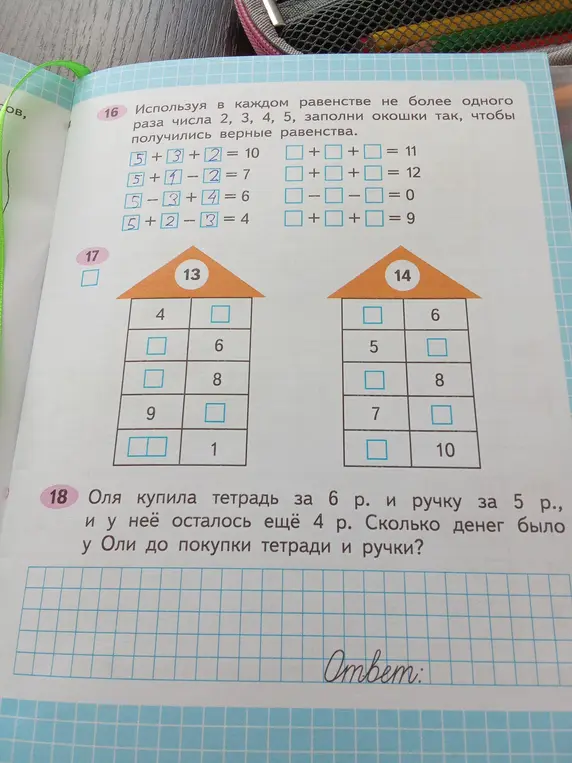 ов,
16 Используя в каждом равенстве не более одного
раза числа 2, 3, 4, 5, заполни окошки так, чтобы
получились верные равенства.
5 + 3 + 2 = 10 □ + □ + □ = 11
5 + 4 − 2 = 7 □ + □ + □ = 12
5 − 3 + 4 = 6 □ − □ − □ = 0
5 + 2 − 3 = 4 □ + □ + □ = 9
17
13 14
4 □ □ 6
□ 6 5 □
□ 8 □ 8
9 □ 7 □
□□ 1 □ 10
18 Оля купила тетрадь за 6 р. и ручку за 5 р.,
и у неё осталось ещё 4 р. Сколько денег было
у Оли до покупки тетради и ручки?
Ответ: